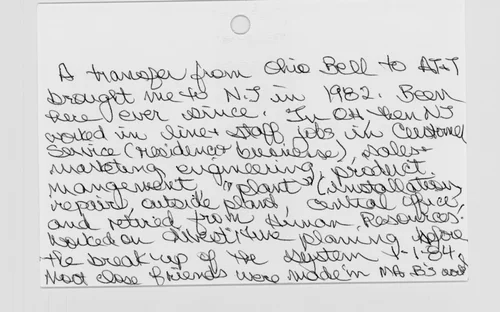 A transfer from Ohio Bell to AT+T
brought me to N.J in 1982. Been
here ever since. In OH then NJ
worked in line + staff jobs in Customer
Service (residence + business), sales +
marketing, engineering, product
mangement, "plant" (installation,
repair, outside plant, central office,
and retired from Human Resources.
Worked on divestiture planning before
the break-up of the system 1-1-84.
Most close friends were made in MA B's and